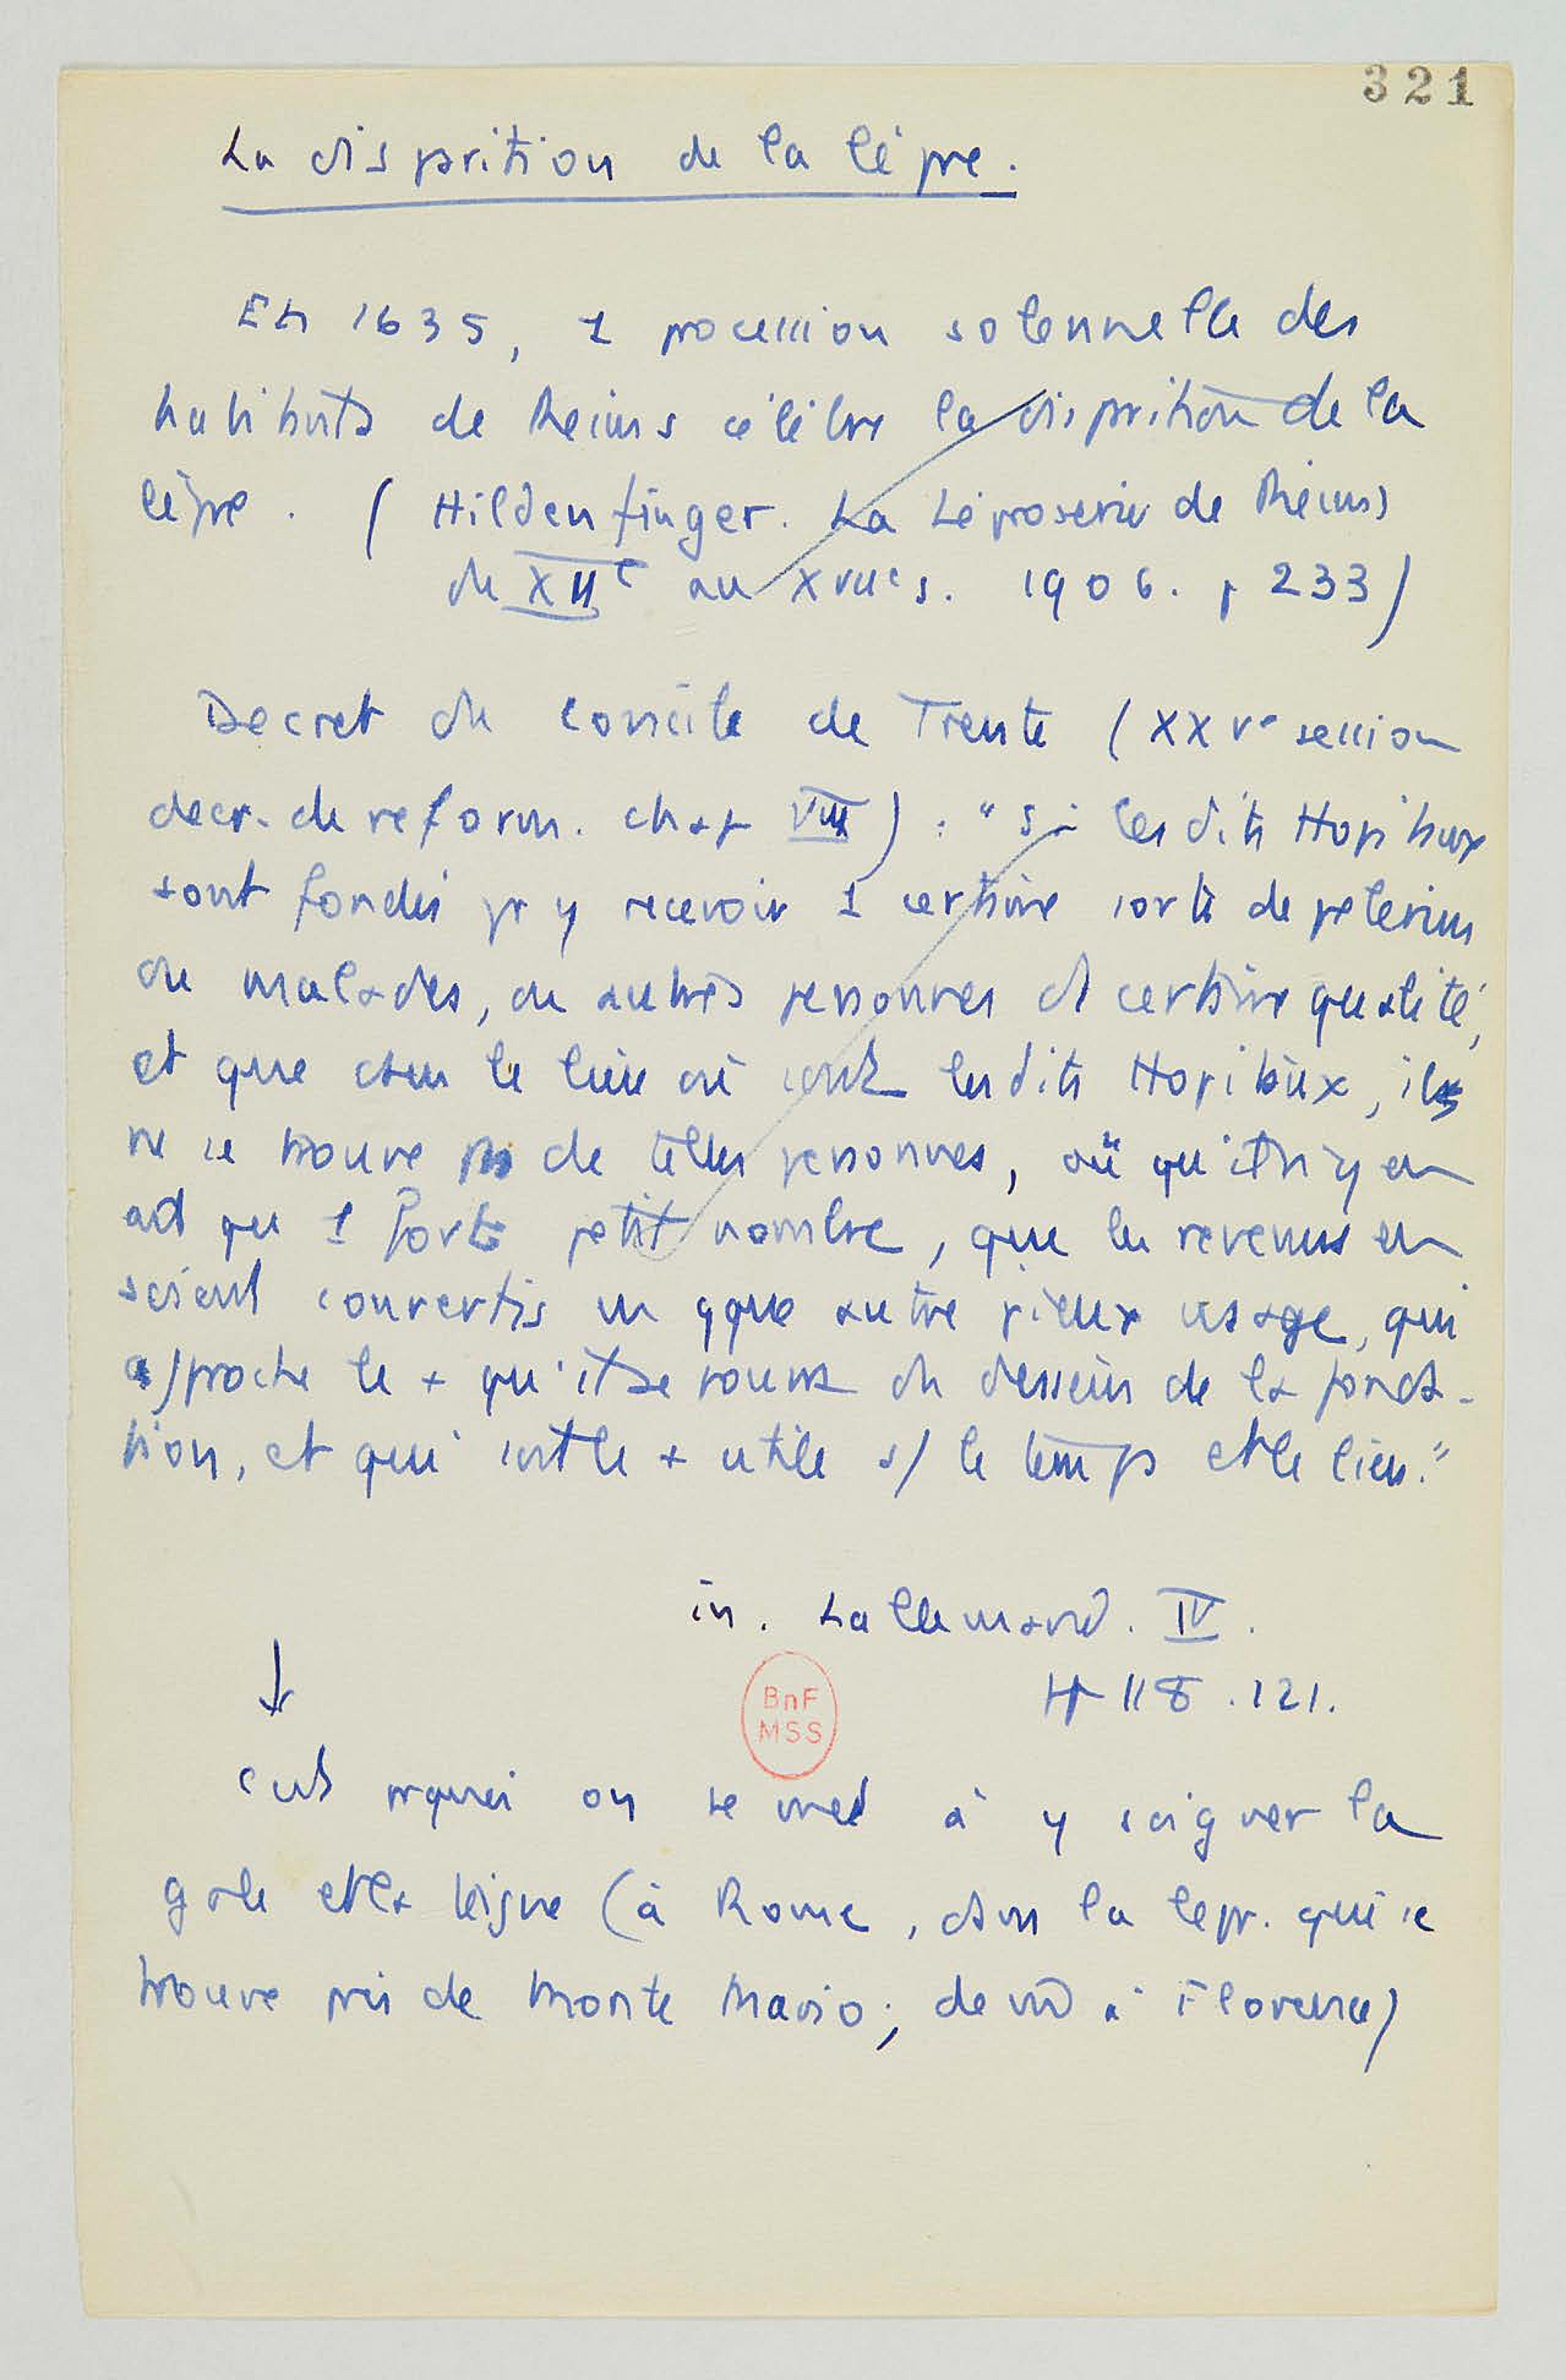 321
La disparition de la lèpre.
En 1635, 1 procession solennelle des
habitants de Reims célèbre la disparition de la
lèpre. (Hildenfinger. La Léproserie de Reims
du XIIe au XVIIe s. 1906. p 233)
Decret du concile de Trente (XXVe session
decr. de reform. chap VIII) : "Si lesdits Hopitaux
sont fondés pr y recevoir 1 certaine sorte de pelerins
ou malades, ou autres personnes de certaine qualité,
et que dans le lieu où sont lesdits Hopitaux, il
ne se trouve pas de telles personnes, ou qu'il n'y en
ait qu 1 fort petit nombre, que les revenus en
soient convertis en qque autre pieux usage, qui
approche le + qu'il se pourra du dessein de la fonda-
tion, et qui soit le + utile s/ le temps et le lieu."
in. Lallemand. IV.
pp 118.121.
↓
BnF
MSS
c'est pquoi on se met à y soigner la
gale et la teigne (à Rome, dans la lepr. qui se
trouve près de Monte Mario; de m̂ à Florence)